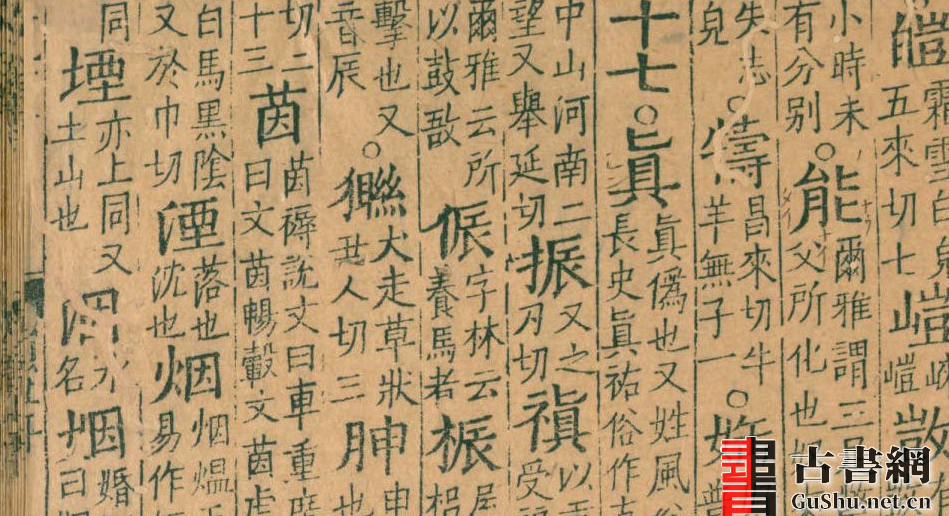 霜雪白皃五來切七
小時未有分別○能爾雅謂三父所化也
失志皃○犞昌來切牛羊無子一○
十七○眞眞僞也又姓風俗長史眞祐俗作
中山河南二望又舉延切振又之刃切禛以受
爾雅云所以鼓敔侲字林云養馬者桭屋梠
擊也又音辰○獜犬走草狀人切三申也
切二十三茵茵褥說文曰車重席曰文茵暢轂文茵虎
白馬黑陰又於巾切湮落也沈也烟烟熅易作
同堙土山也亦上同又洇水名姻婚曰
古書網
GuShu.net.cn